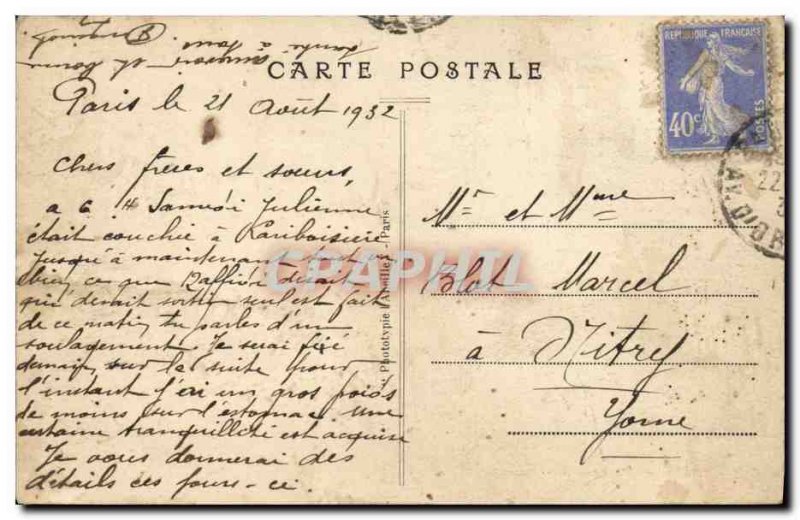 CARTE POSTALE
REPUBLIQUE FRANÇAISE
40c
POSTES
Paris le 21 Août 1932
Chers frères et sœurs,
a 6 H Samedi Julienne
était couchée à Lariboisière
jusqu'à maintenant tout va
bien ce que Raffin disait
que devait sortir seul est fait
de ce matin tu parles d'un
soulagement Je serai fixé
demain sur la suite Pour
l'instant j'ai un gros poids
de moins sur l'estomac Une
certaine tranquillité est acquise
Je vous donnerai des
détails ces jours-ci.
bonne et
santé à tous
Mr et Mme
Blot Marcel
à Vitry
Yonne
Phototypie "Apollo", Paris
CPAPHIL
22